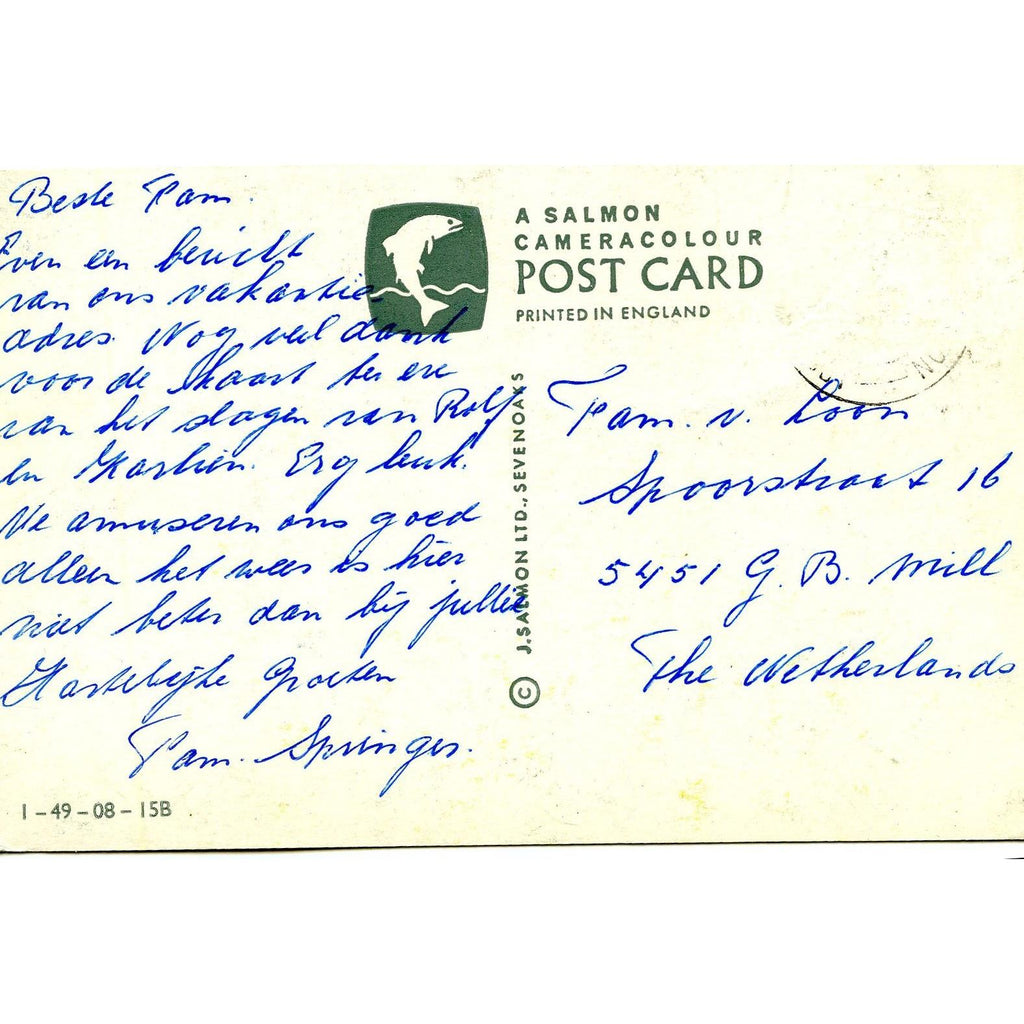 Beste Fam.
Even een bericht
van ons vakantie
adres. Nog veel dank
voor de kaart ter ere
van het slagen van Rolf
en Marlien. Erg leuk.
We amuseren ons goed
alleen het weer is hier
niet beter dan bij jullie
Hartelijke Groeten
Fam. Springer.
1-49-08-15B
A SALMON
CAMERACOLOUR
POST CARD
PRINTED IN ENGLAND
© J.SALMON LTD., SEVENOAKS
Fam. v. Loon
Spoorstraat 16
5451 G.B. Mill
The Netherlands